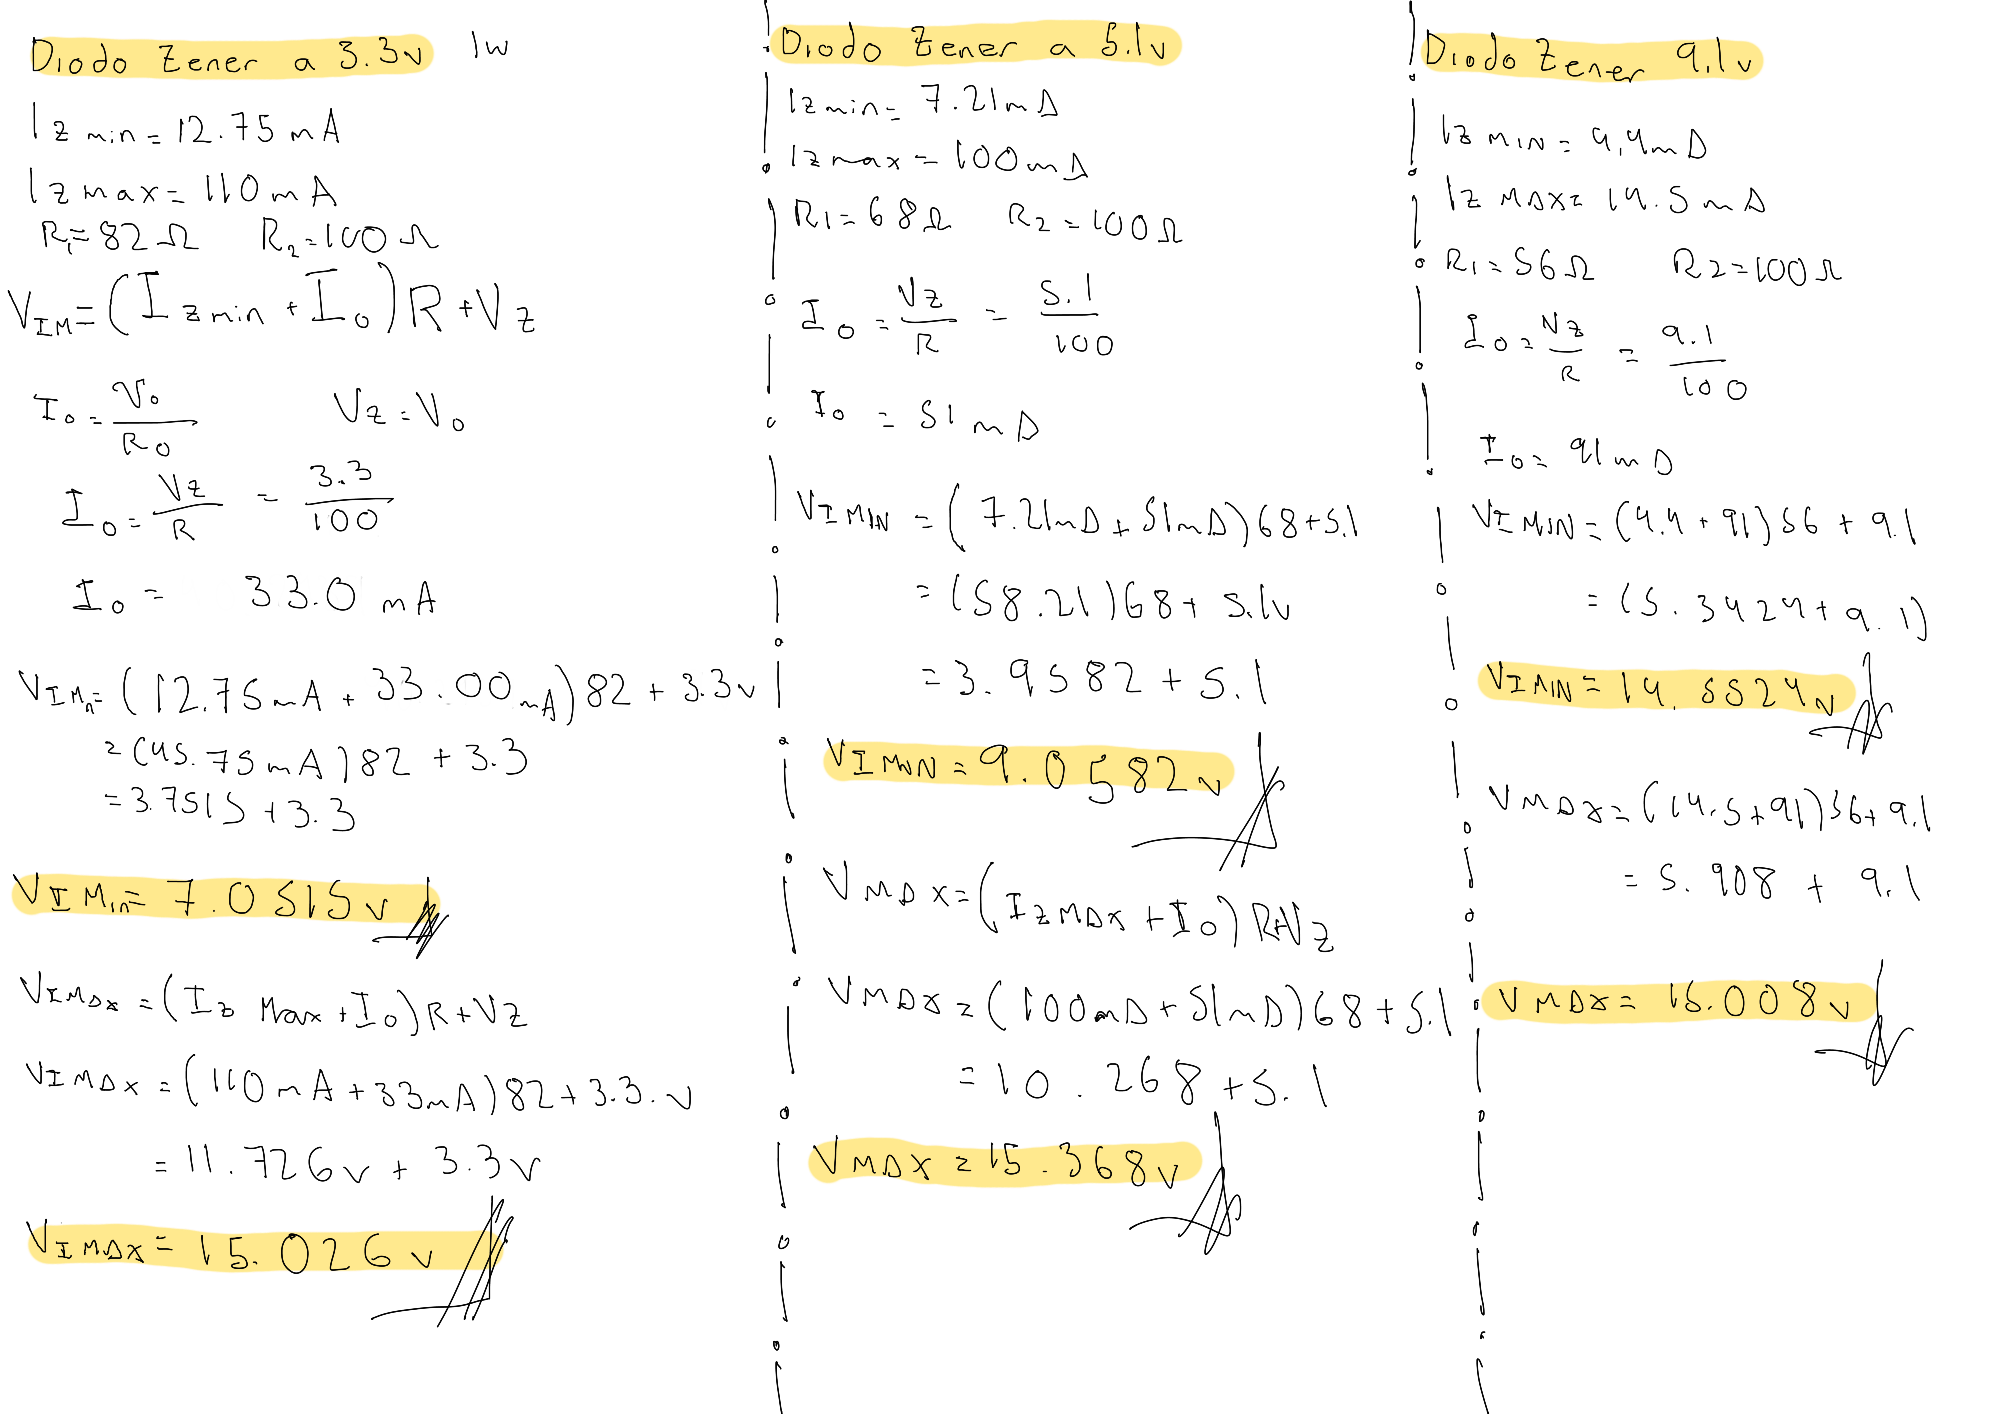 Diodo Zener a 3.3v 1w
Izmin = 12.75 mA
Izmax = 110mA
R1 = 82Ω R2 = 100Ω
VIM = (Izmin + Io)R + Vz
Io = Vo/Ro Vz = Vo
Io = Vz/R = 3.3/100
Io = 33.0 mA
VIMn = (12.75mA + 33.00mA)82 + 3.3v
= (45.75mA)82 + 3.3
= 3.7515 + 3.3
VIMin = 7.0515v
VIMAX = (Iz Max + Io)R + VZ
VIMAX = (110mA + 33mA)82 + 3.3.v
= 11.726v + 3.3v
VIMAX = 15.026v
Diodo Zener a 5.1v
Izmin = 7.21mA
Izmax = 100mA
R1 = 68Ω R2 = 100Ω
Io = Vz/R = 5.1/100
Io = 51mA
VIMIN = (7.21mA + 51mA)68 + 5.1
= (58.21)68 + 5.1v
= 3.9582 + 5.1
VIMIN = 9.0582v
VMAX = (IzMAX + Io)R+Vz
VMAX = (100mA + 51mA)68 + 5.1
= 10.268 + 5.1
VMAX = 15.368v
Diodo Zener 9.1v
Iz MIN = 4,4mA
Iz MAX = 14.5mA
R1 = 56Ω R2 = 100Ω
Io = Vz/R = 9.1/100
Io = 91mA
VIMIN = (4.4 + 91)56 + 9.1
= (5.3424 + 9.1)
VIMIN = 14.5524v
VMAX = (14.5 + 91)56 + 9.1
= 5.908 + 9.1
VMAX = 15.008v